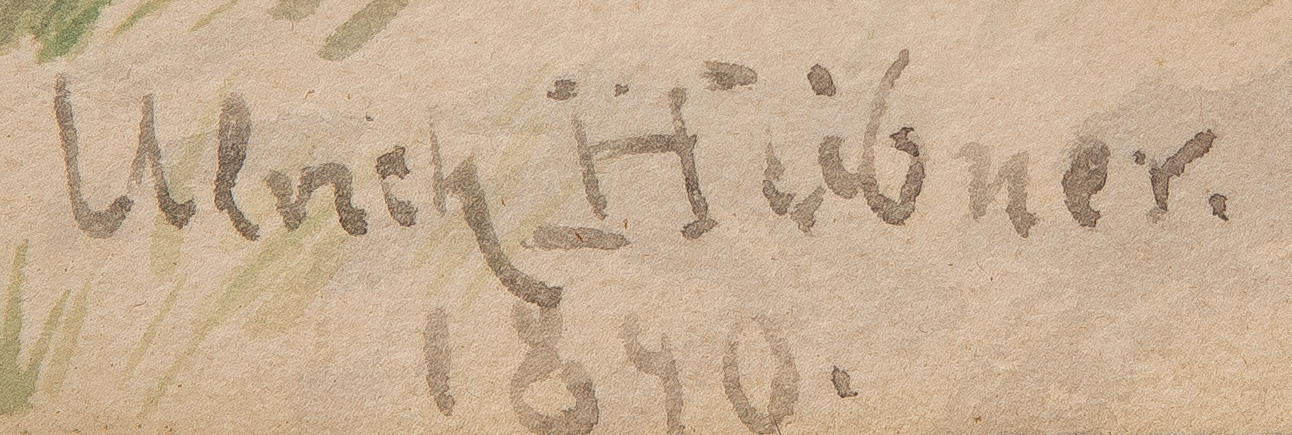 Ulrich Hübner.
1890.